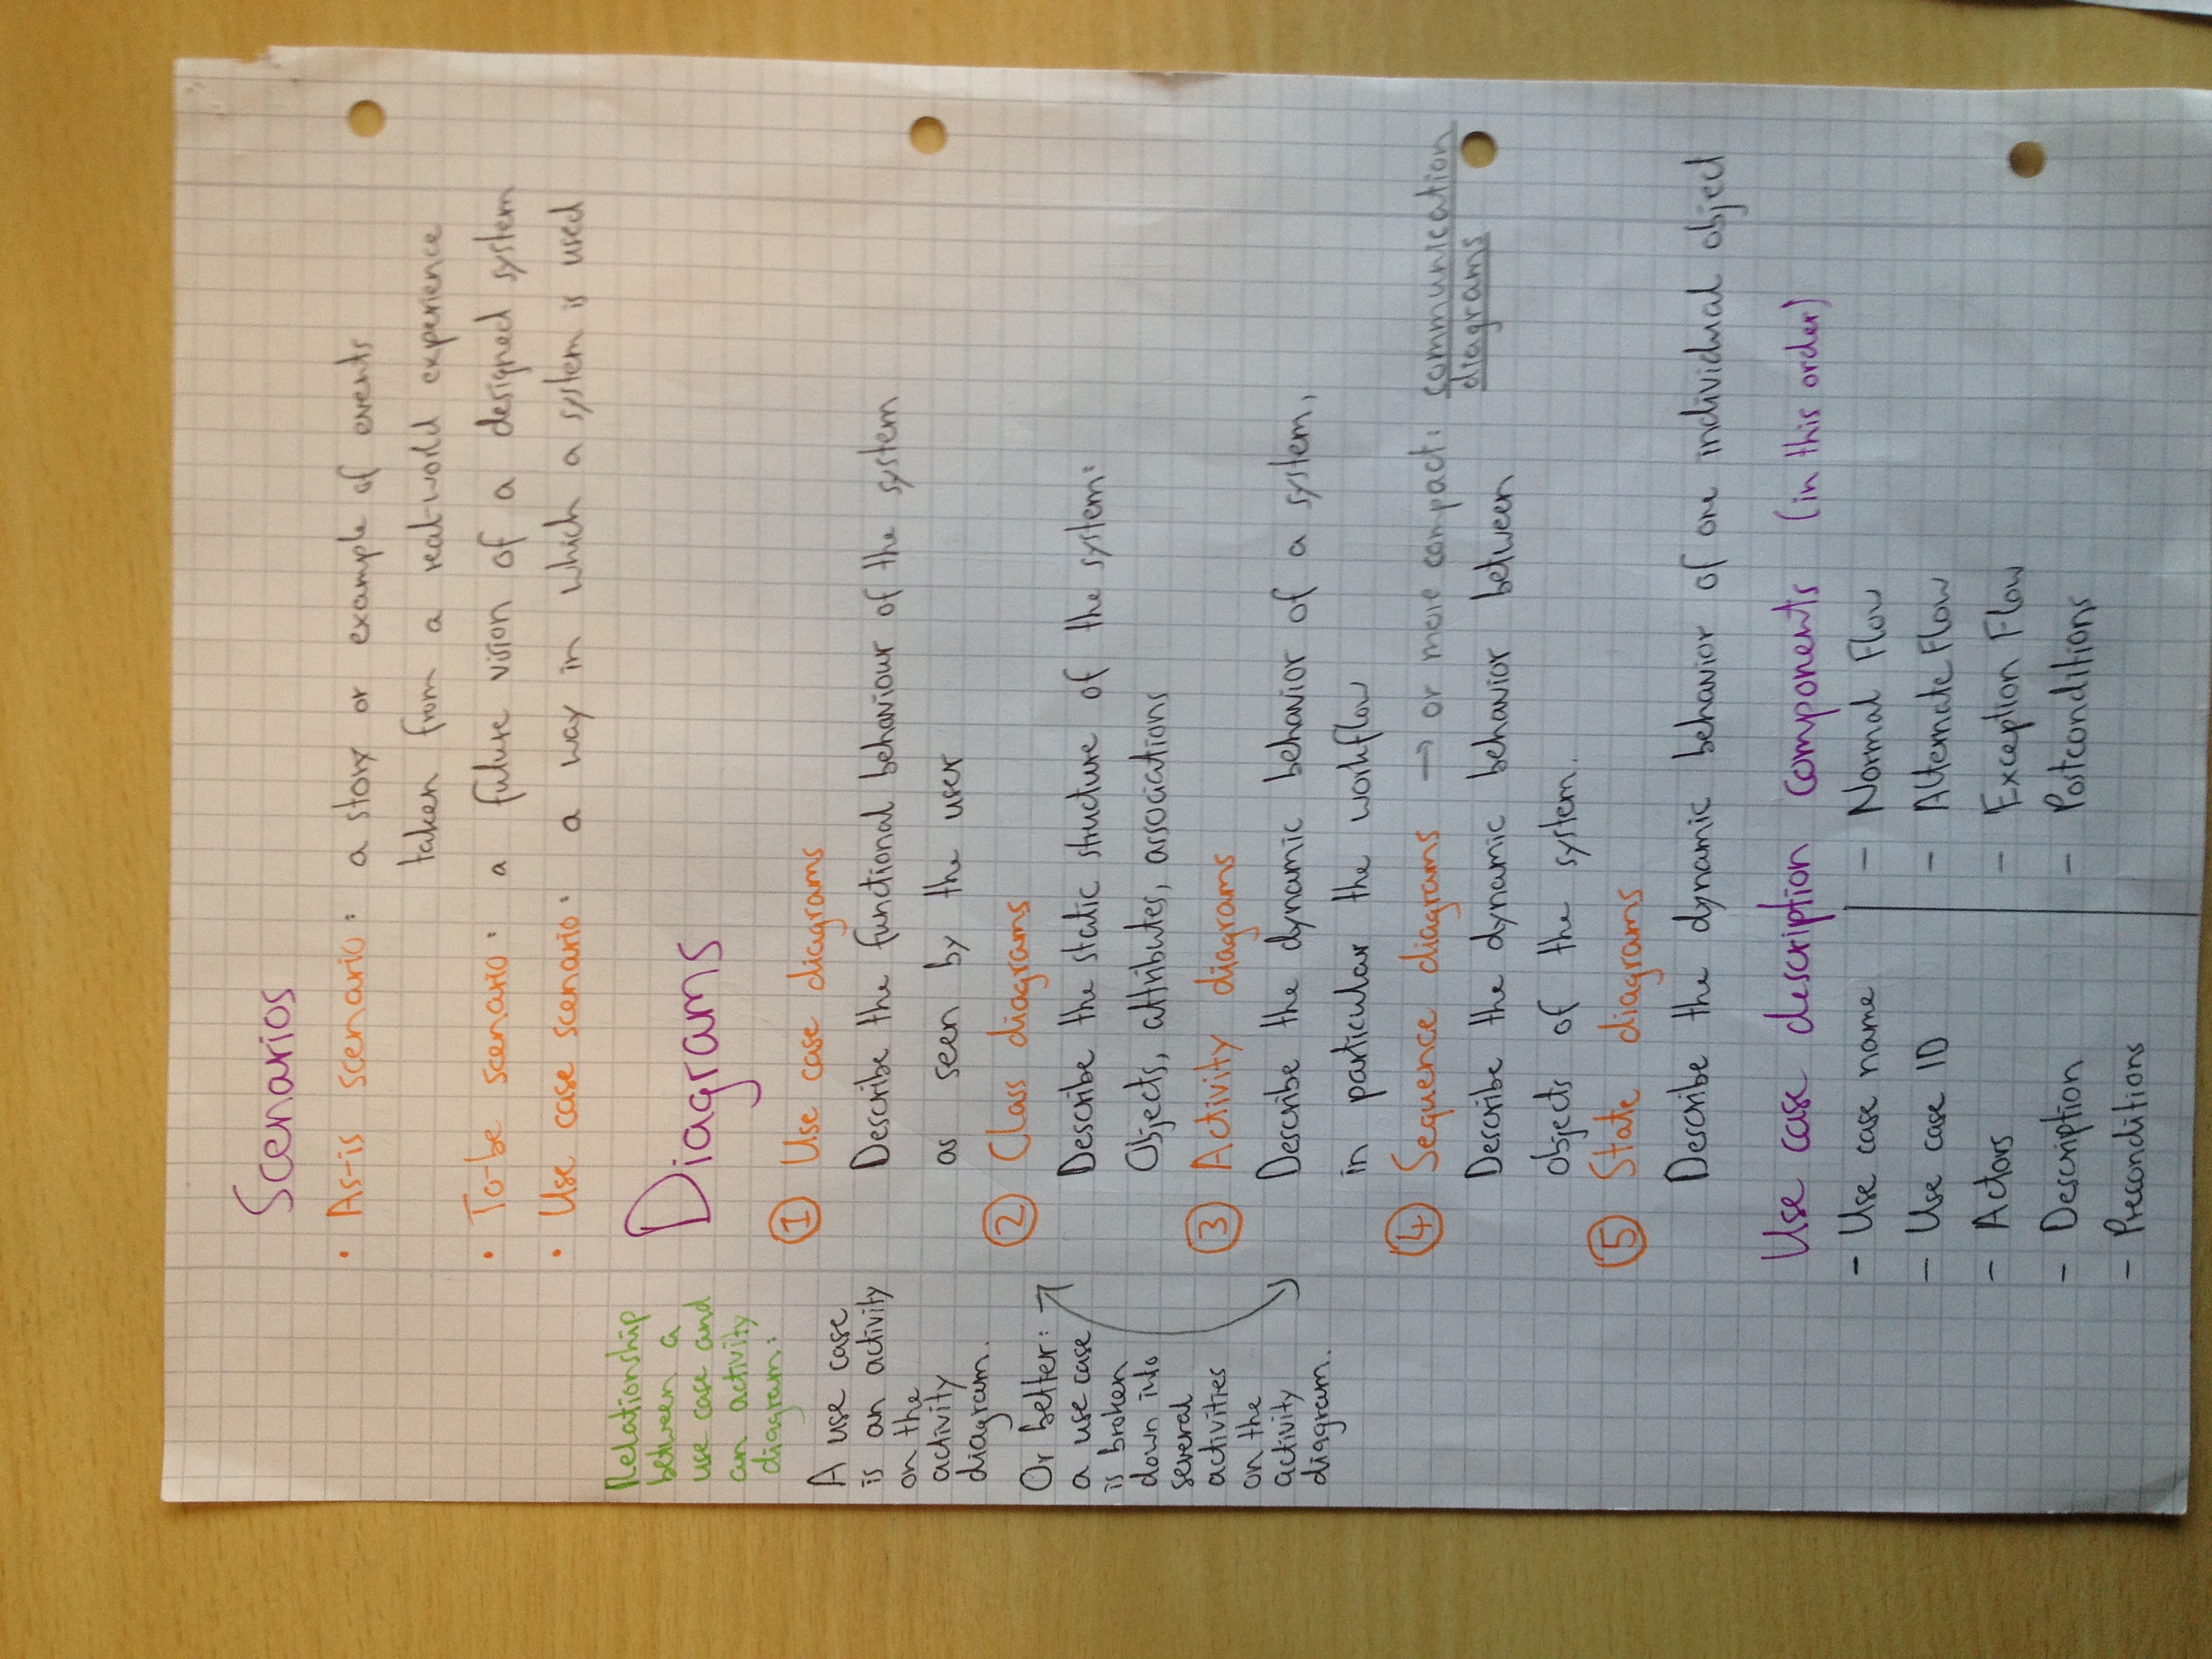 Scenarios
• As-is scenario: a story or example of events
taken from a real-world experience
• To-be scenario: a future vision of a designed system
• Use case scenario: a way in which a system is used
Relationship
between a
use case and
an activity
diagram:
A use case
is an activity
on the
activity
diagram.
Or better: →
a use case
is broken
down into
several
activities
on the
activity
diagram.
Diagrams
① Use case diagrams
Describe the functional behaviour of the system
as seen by the user
② Class diagrams
Describe the static structure of the system:
Objects, attributes, associations
③ Activity diagrams
Describe the dynamic behavior of a system,
in particular the workflow
④ Sequence diagrams → or more compact: communication
diagrams
Describe the dynamic behavior between
objects of the system.
⑤ State diagrams
Describe the dynamic behavior of one individual object
Use case description components (in this order)
- Use case name
- Use case ID
- Actors
- Description
- Preconditions
- Normal Flow
- Alternate Flow
- Exception Flow
- Postconditions